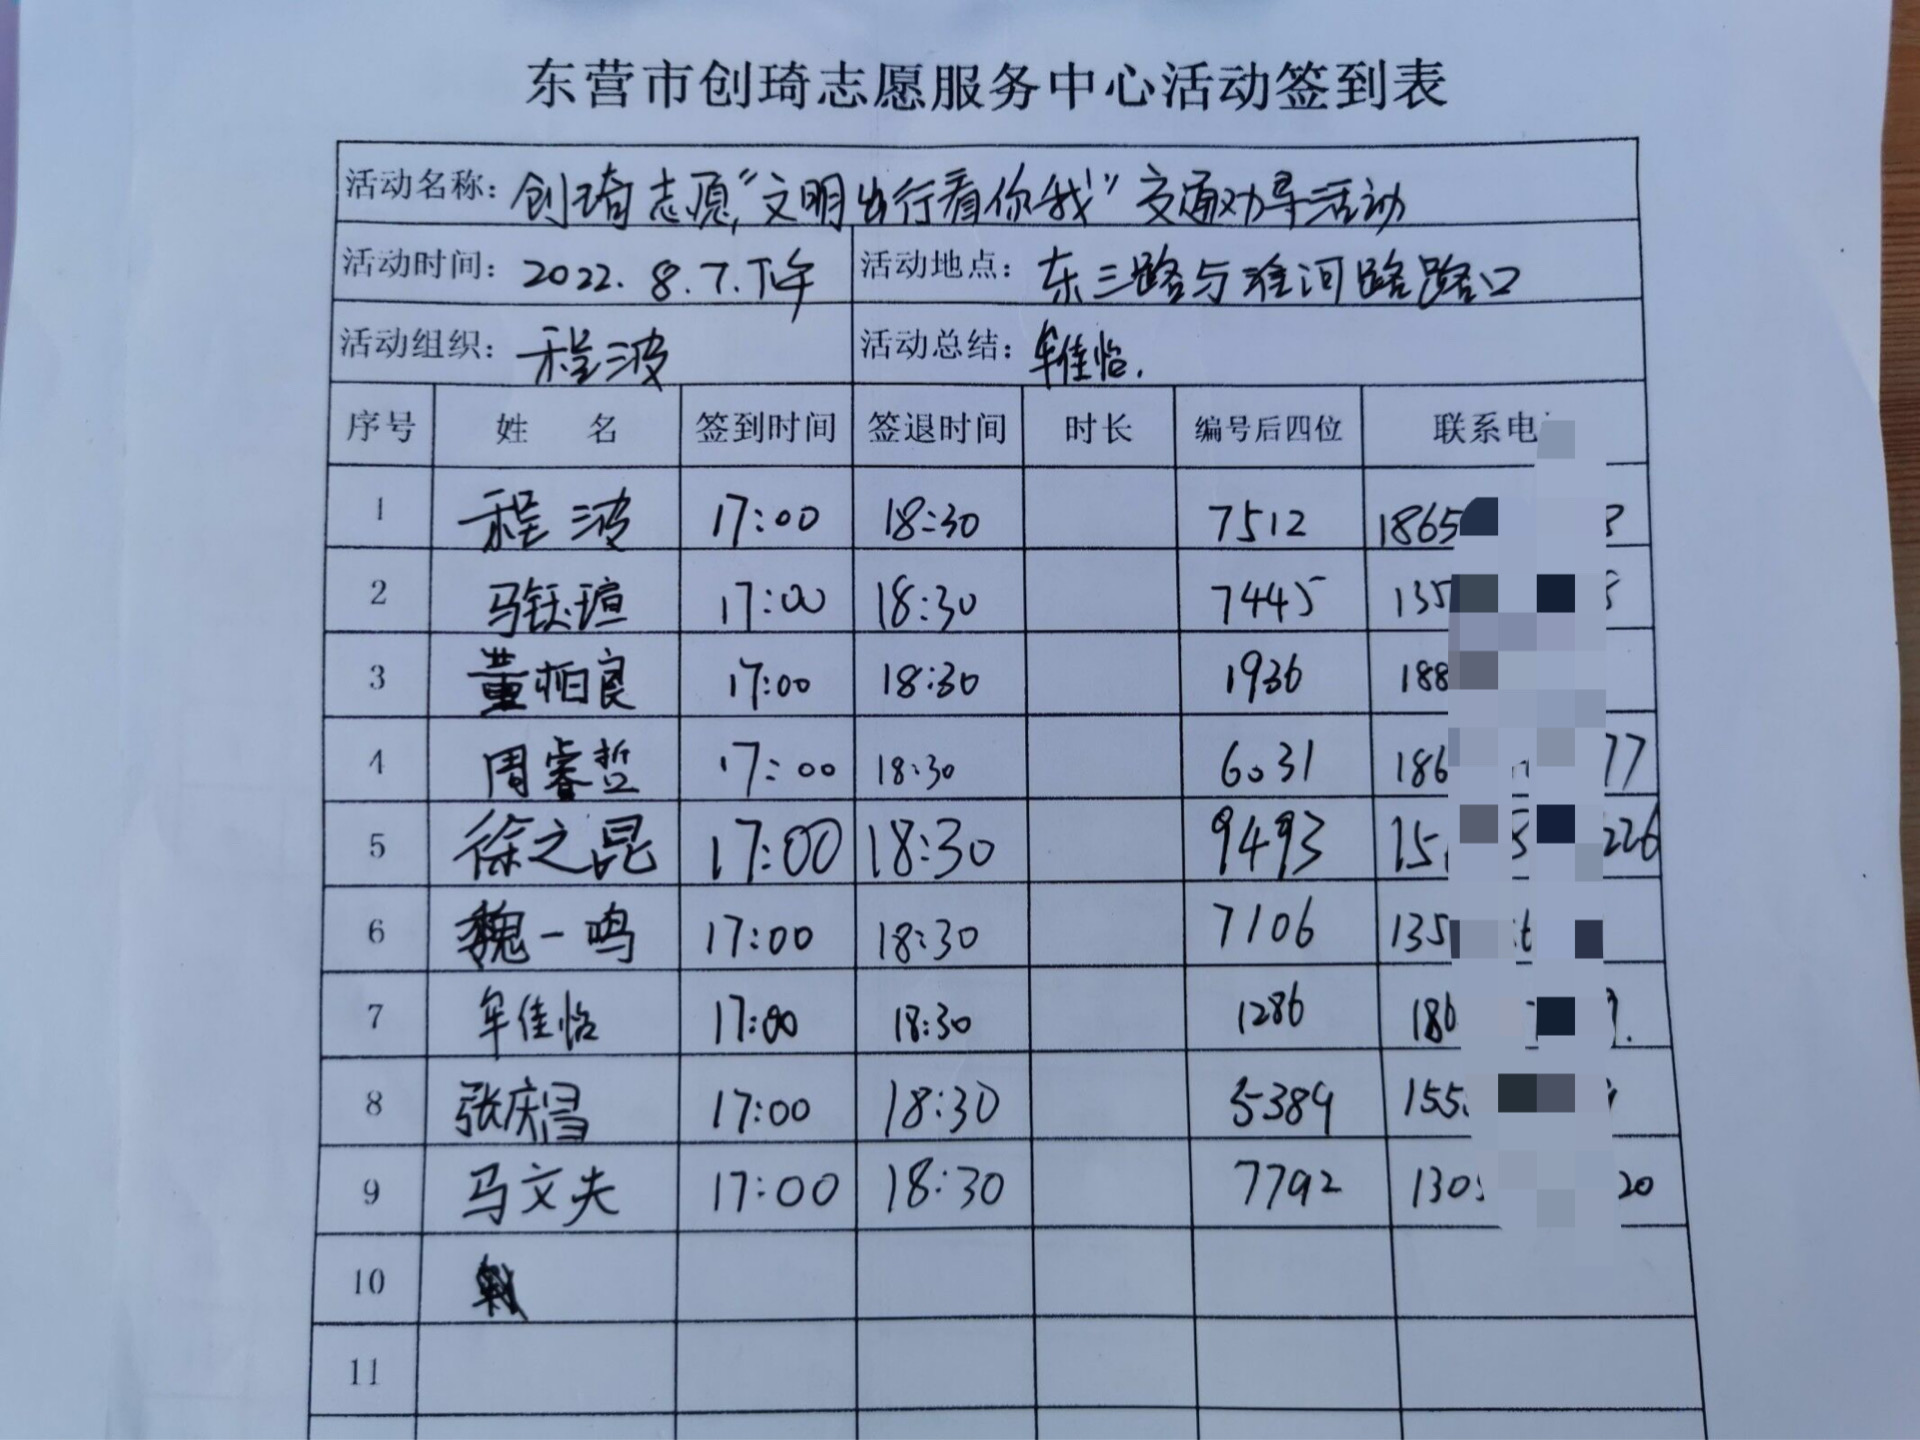 东营市创琦志愿服务中心活动签到表
活动名称: 创琦志愿“文明出行看你我”交通劝导活动
活动时间: 2022.8.7.下午 活动地点: 东三路与淮河路路口
活动组织: 程波 活动总结: 牟佳怡.
序号 姓 名 签到时间 签退时间 时长 编号后四位 联系电
1 程波 17:00 18:30 7512 1865 3
2 马钰瑄 17:00 18:30 7445 135 8
3 董柏良 17:00 18:30 1936 188
4 周睿哲 17:00 18:30 6031 186 77
5 徐之昆 17:00 18:30 9493 15 226
6 魏一鸣 17:00 18:30 7106 135
7 牟佳怡 17:00 18:30 1286 186
8 张庆昌 17:00 18:30 5389 155
9 马文夫 17:00 18:30 7792 130 20
10
11